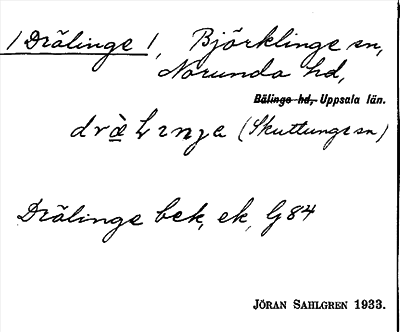 /Drälinge/, Björklinge sn,
Norunda hd,
Bälinge hd, Uppsala län.
dràlınga (Skuttunge sn)
Drälinge bek, ek, G84
JÖRAN SAHLGREN 1933.